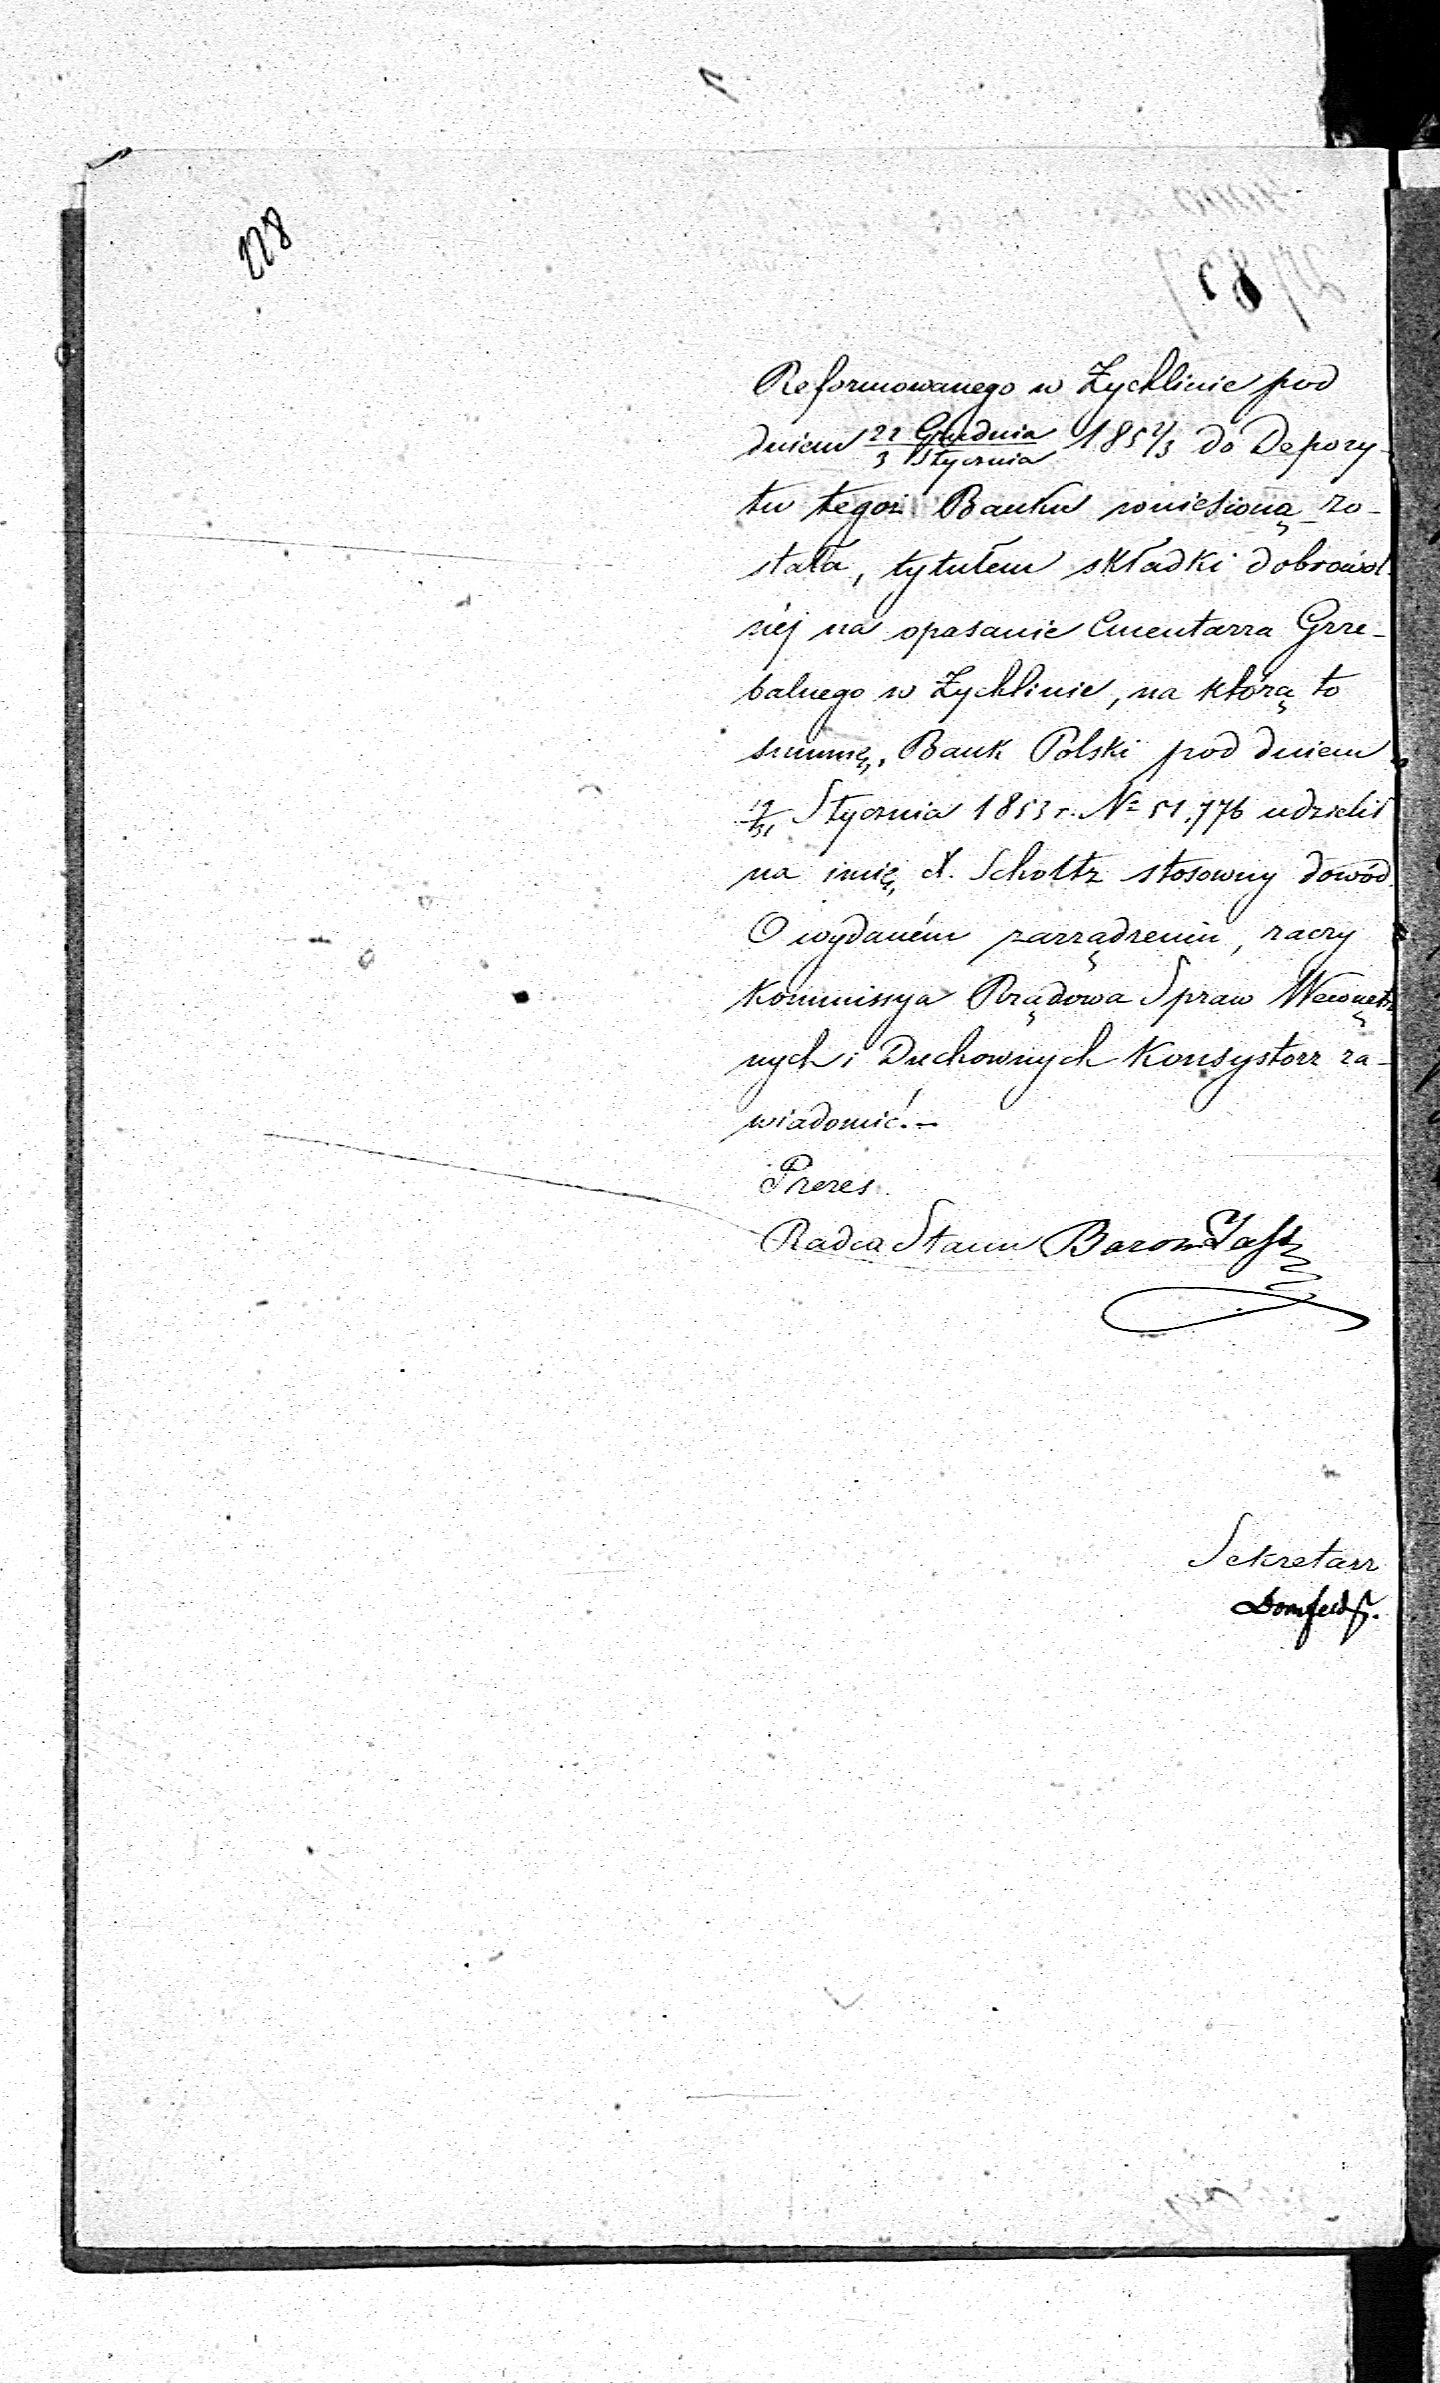 228
Reformowanego w Żychlinie pod
dniem 22 Grudnia / 3 Stycznia 185 2/3 do Depozy-
tu tegoż Banku wniesioną zo-
stała, tytułem składki dobrowol-
néj na opasanie Cmentarza Grze-
balnego w Żychlinie, na którą to
summę, Bank Polski pod dniem
19/31 Stycznia 1853 r. № 51,776 udzielił
na imię X. Scholtz stosowny dowód.
O wydaném zarządzeniu, raczy
Kommissya Rządowa Spraw Wewnętrz
nych i Duchownych Konsystorz za-
wiadomić.–
Prezes
Radca Stanu Baron
Sekretarz